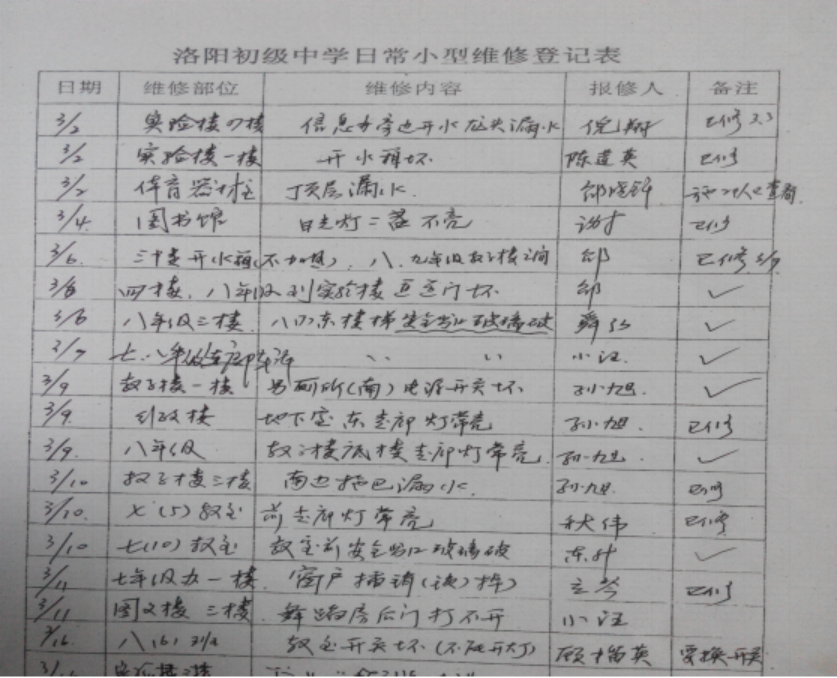 洛阳初级中学日常小型维修登记表
日期 维修部位 维修内容 报修人 备注
3/2 实验楼四楼 信息办旁边开水龙头漏水 倪翔 已修 3.3
3/2 实验楼一楼 开水箱坏 陈建英 已修
3/2 体育器材室 顶层漏水. 邵晓锌
3/4. 图书馆 日光灯二盏不亮 已修
3/6. 三楼开水箱(不加热), 八.九年级教学楼之间 邹 已修 3/9
3/6 四楼, 八年级到实验楼 门坏 邹 ✓
3/6 八年级三楼. 八(1)东楼梯安全出口玻璃破 ✓
3/7 七.八年级 〃 〃 小汪. ✓
3/9 教学楼一楼 男厕所(南)电源开关坏 孙旭. ✓
3/9. 行政楼 地下室东走廊灯常亮 孙旭. 已修
3/9. 八年级 教学楼底楼走廊灯常亮. 孙旭. ✓
3/10 教学楼三楼 南边拖巴漏水. 孙旭. 已修
3/10. 七(5)教室 前走廊灯常亮 伟 已修
3/10 七(10)教室 教室前安全出口玻璃破 东升 ✓
3/11 七年级办一楼. 窗户插销(锁)掉) 已修
3/11 图文楼三楼. 舞蹈房后门打不开 小汪
3/16. 八(6) 教室开关坏(不能开灯) 顾 英 要换开关